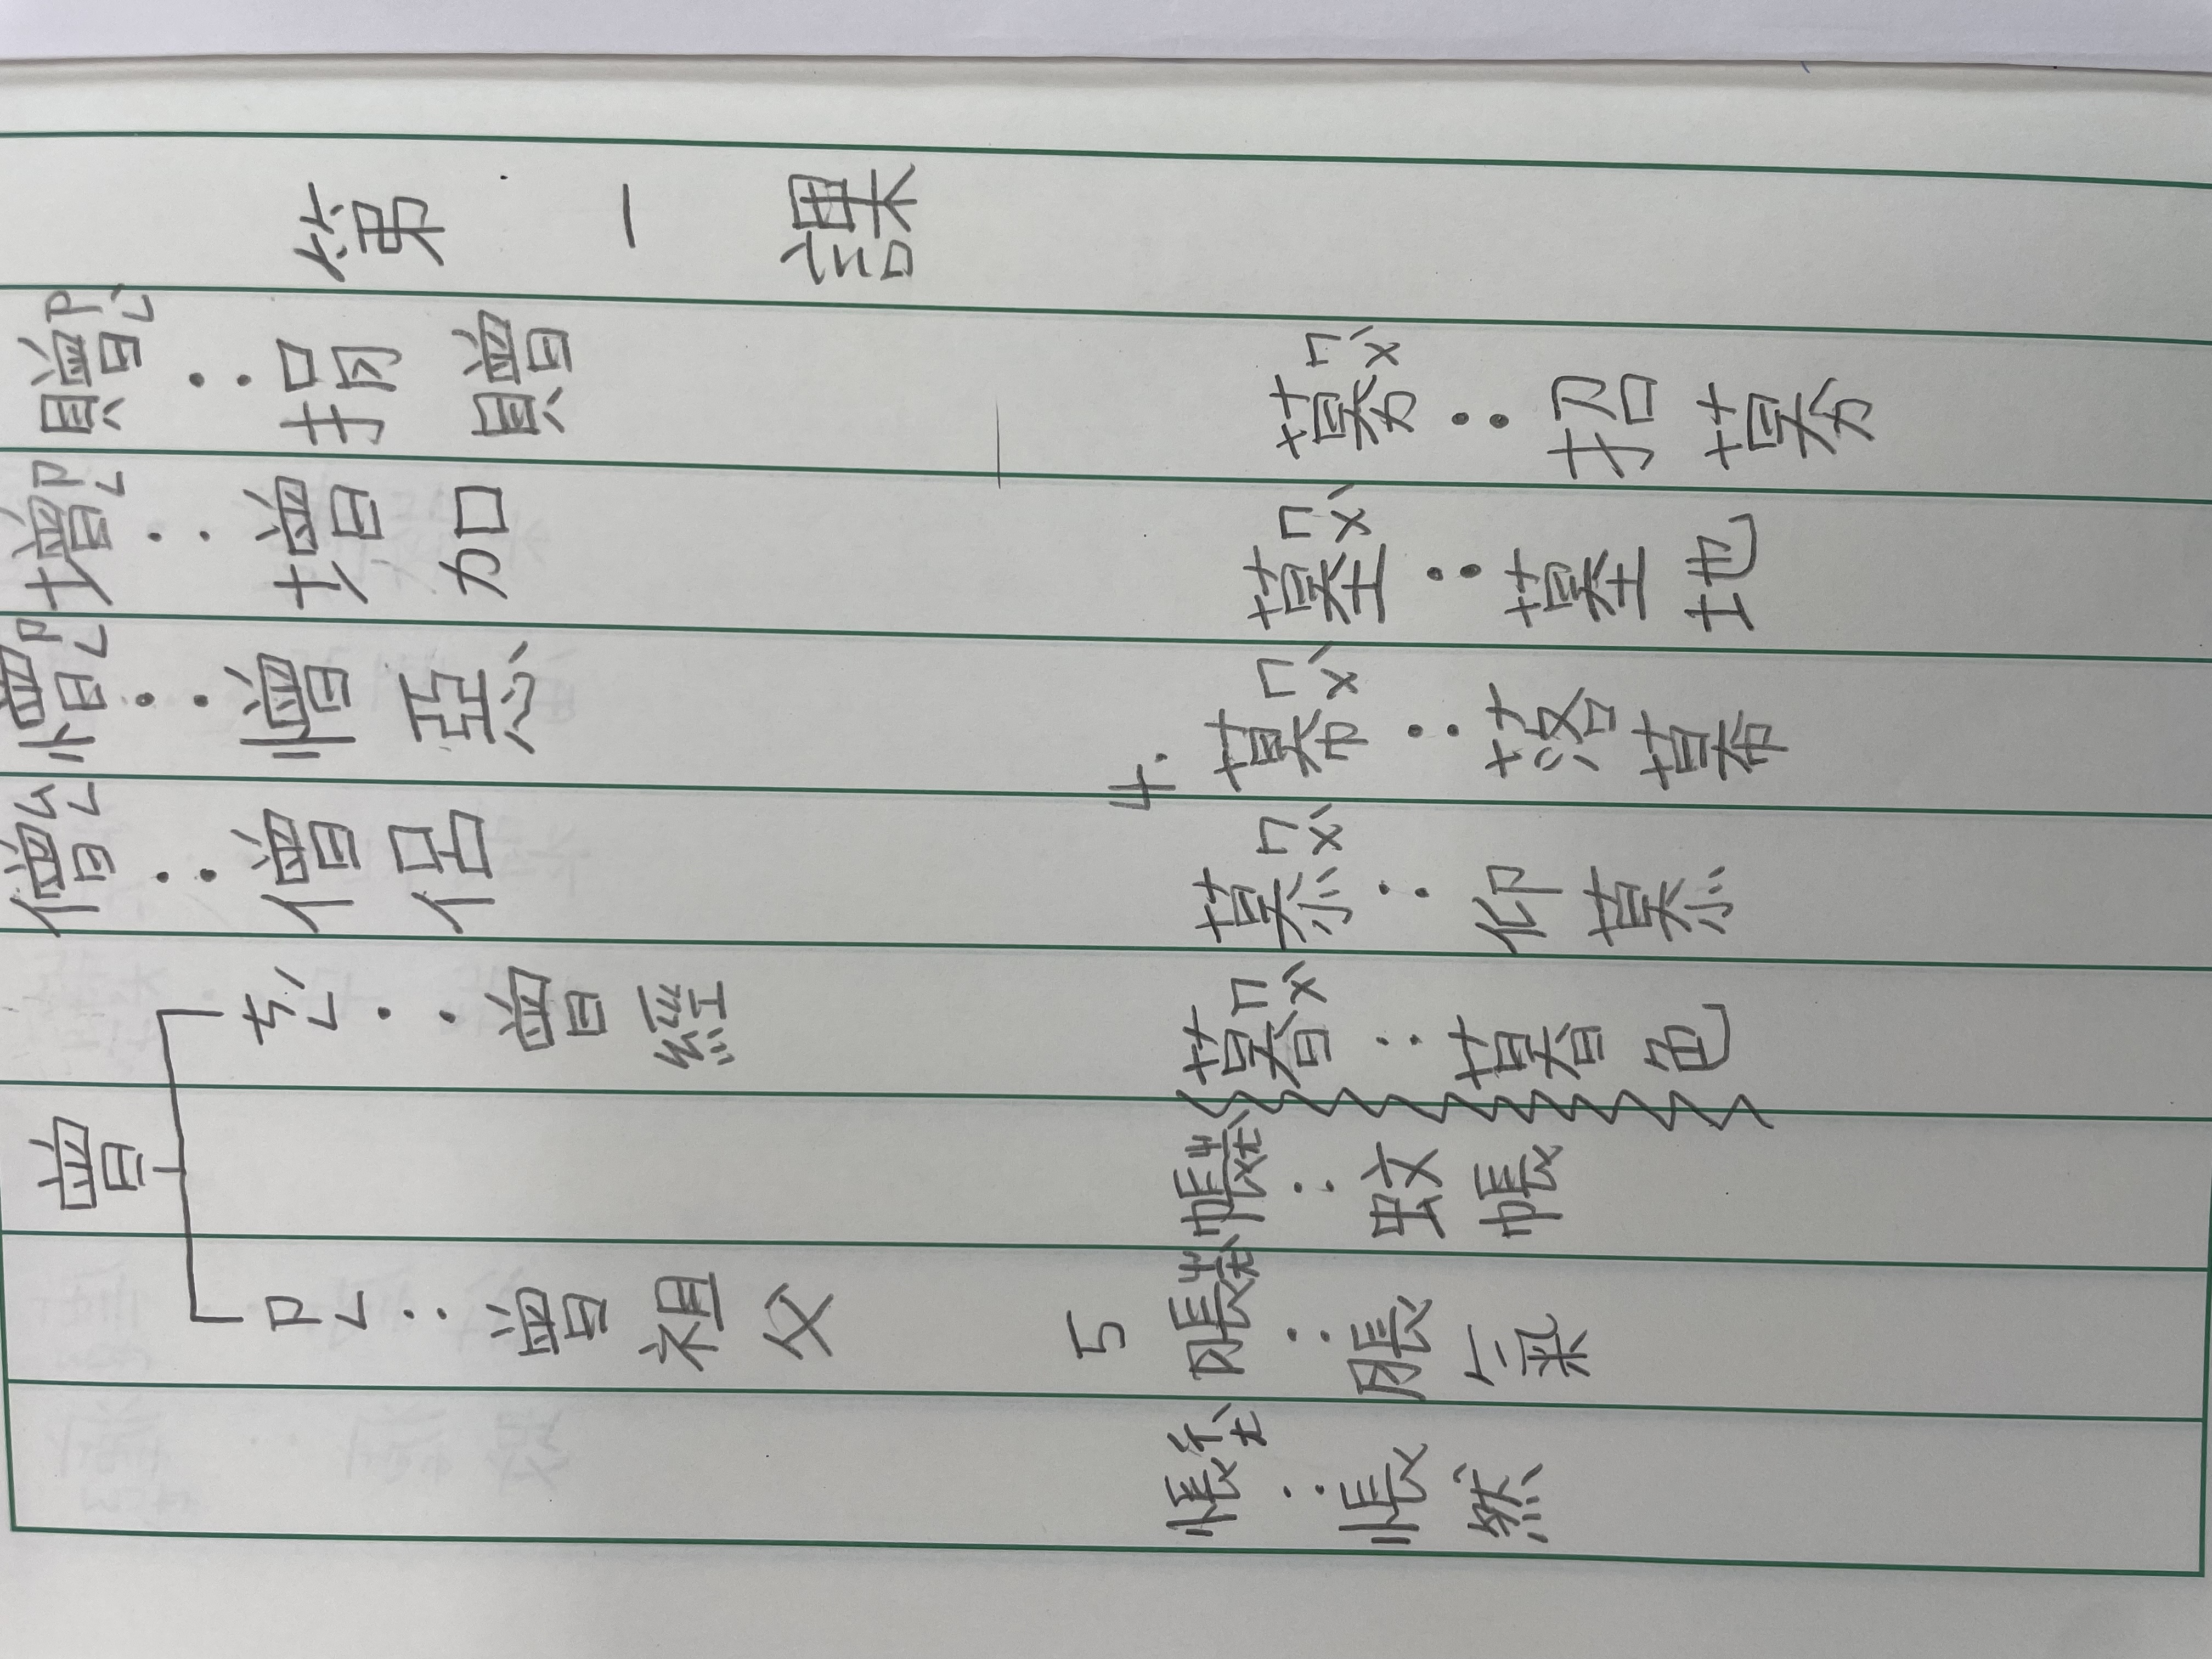 第一課
贈ㄗㄥˋ：捐贈
增ㄗㄥ：增加
憎ㄗㄥ：憎惡
僧ㄙㄥ：僧侶
曾
ㄘㄥˊ：曾經
ㄗㄥ：曾祖父
募ㄇㄨˋ：招募
墓ㄇㄨˋ：墓地
4. 幕ㄇㄨˋ：落幕
慕ㄇㄨˋ：仰慕
暮ㄇㄨˋ：暮色
帳ㄓㄤˋ：蚊帳
5 脹ㄓㄤˋ：脹氣
悵ㄔㄤˋ：悵然